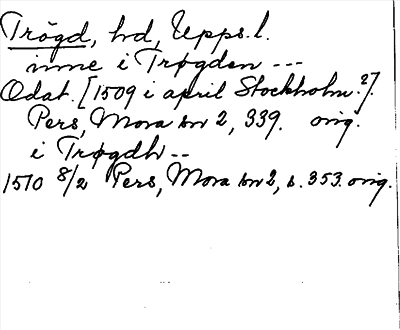 Trögd, hd, Upps. l.
inne i Trøgden ---
Odat. [1509 i april Stockholm?].
Pers, Mora bn 2, 339. orig.
i Trøgdh --
1510 8/2 Pers, Mora bn 2, s. 353. orig.